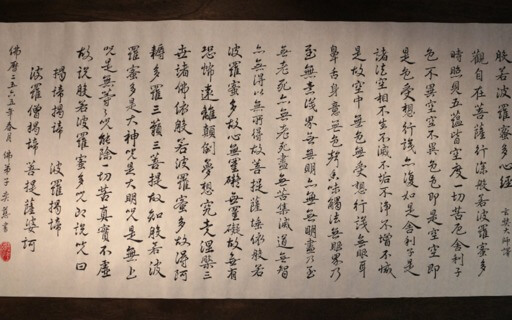 般若波羅蜜多心經
玄奘大師譯
觀自在菩薩行深般若波羅蜜多
時照見五蘊皆空度一切苦厄舍利子
色不異空空不異色色即是空空即
是色受想行識亦復如是舍利子是
諸法空相不生不滅不垢不淨不增不減
是故空中無色無受想行識無眼耳
鼻舌身意無色聲香味觸法無眼界乃
至無意識界無無明亦無無明盡乃至
無老死亦無老死盡無苦集滅道無智
亦無得以無所得故菩提薩埵依般若
波羅蜜多故心無罣礙無罣礙故無有
恐怖遠離顛倒夢想究竟涅槃三
世諸佛依般若波羅蜜多故得阿
耨多羅三藐三菩提故知般若波
羅蜜多是大神咒是大明咒是無上
咒是無等等咒能除一切苦真實不虛
故說般若波羅蜜多咒即說咒曰
揭諦揭諦 波羅揭諦
波羅僧揭諦 菩提薩婆訶
佛曆二五六五年春月 佛弟子